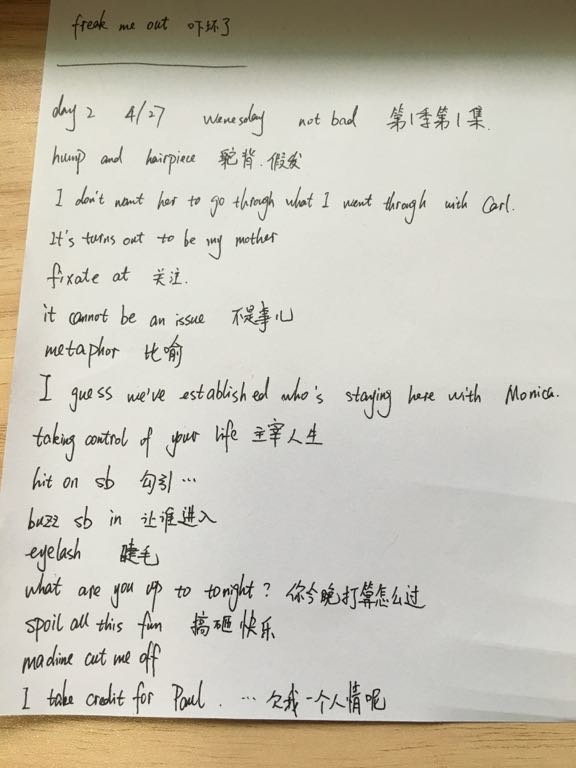 freak me out 吓坏了
day 2 4/27 wenesday not bad 第1季第1集.
hump and hairpiece 驼背.假发
I don't want her to go through what I went through with Carl.
It's turns out to be my mother
fixate at 关注.
it cannot be an issue 不是事儿
metaphor 比喻
I guess we've established who's staying here with Monica.
taking control of your life 主宰人生
hit on sb 勾引…
buzz sb in 让谁进入
eyelash 睫毛
what are you up to tonight? 你今晚打算怎么过
spoil all this fun 搞砸快乐
madine cut me off
I take credit for Paul. …欠我一个人情呢